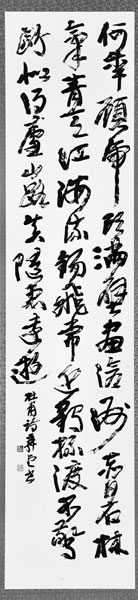 何年顧虎頭滿壁畫滄洲赤日石林
氣青天江海流錫飛常近鶴杯渡不驚
鷗似得廬山路真隨惠遠遊
杜甫詩